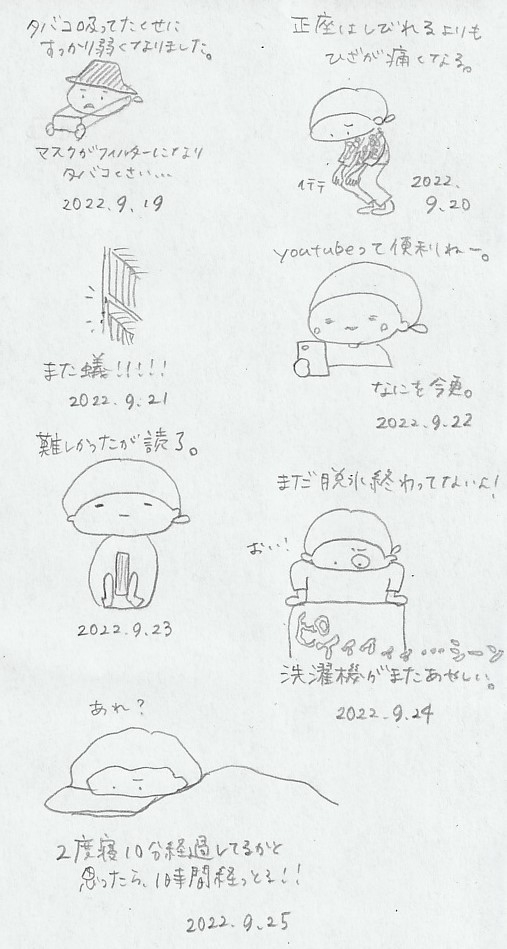 タバコ吸ってたくせに
すっかり弱くなりました。
マスクがフィルターになり
タバコくさい...
2022.9.19
正座はしびれるよりも
ひざが痛くなる。
イテテ
2022.
9.20
また蟻!!!!!
2022.9.21
youtubeって便利ねー。
なにを今更。
2022.9.22
難しかったが読了。
2022.9.23
まだ脱水終わってないよ!
おい!
ピイイイィィ...シーン
洗濯機がまたあやしい。
2022.9.24
あれ?
2度寝10分経過してるかと
思ったら、1時間経っとる!!
2022.9.25